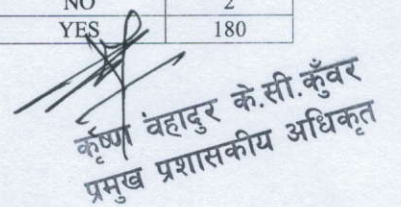 NO 2
YES 180
कृष्ण वहादुर के.सी.कुँवर
प्रमुख प्रशासकीय अधिकृत